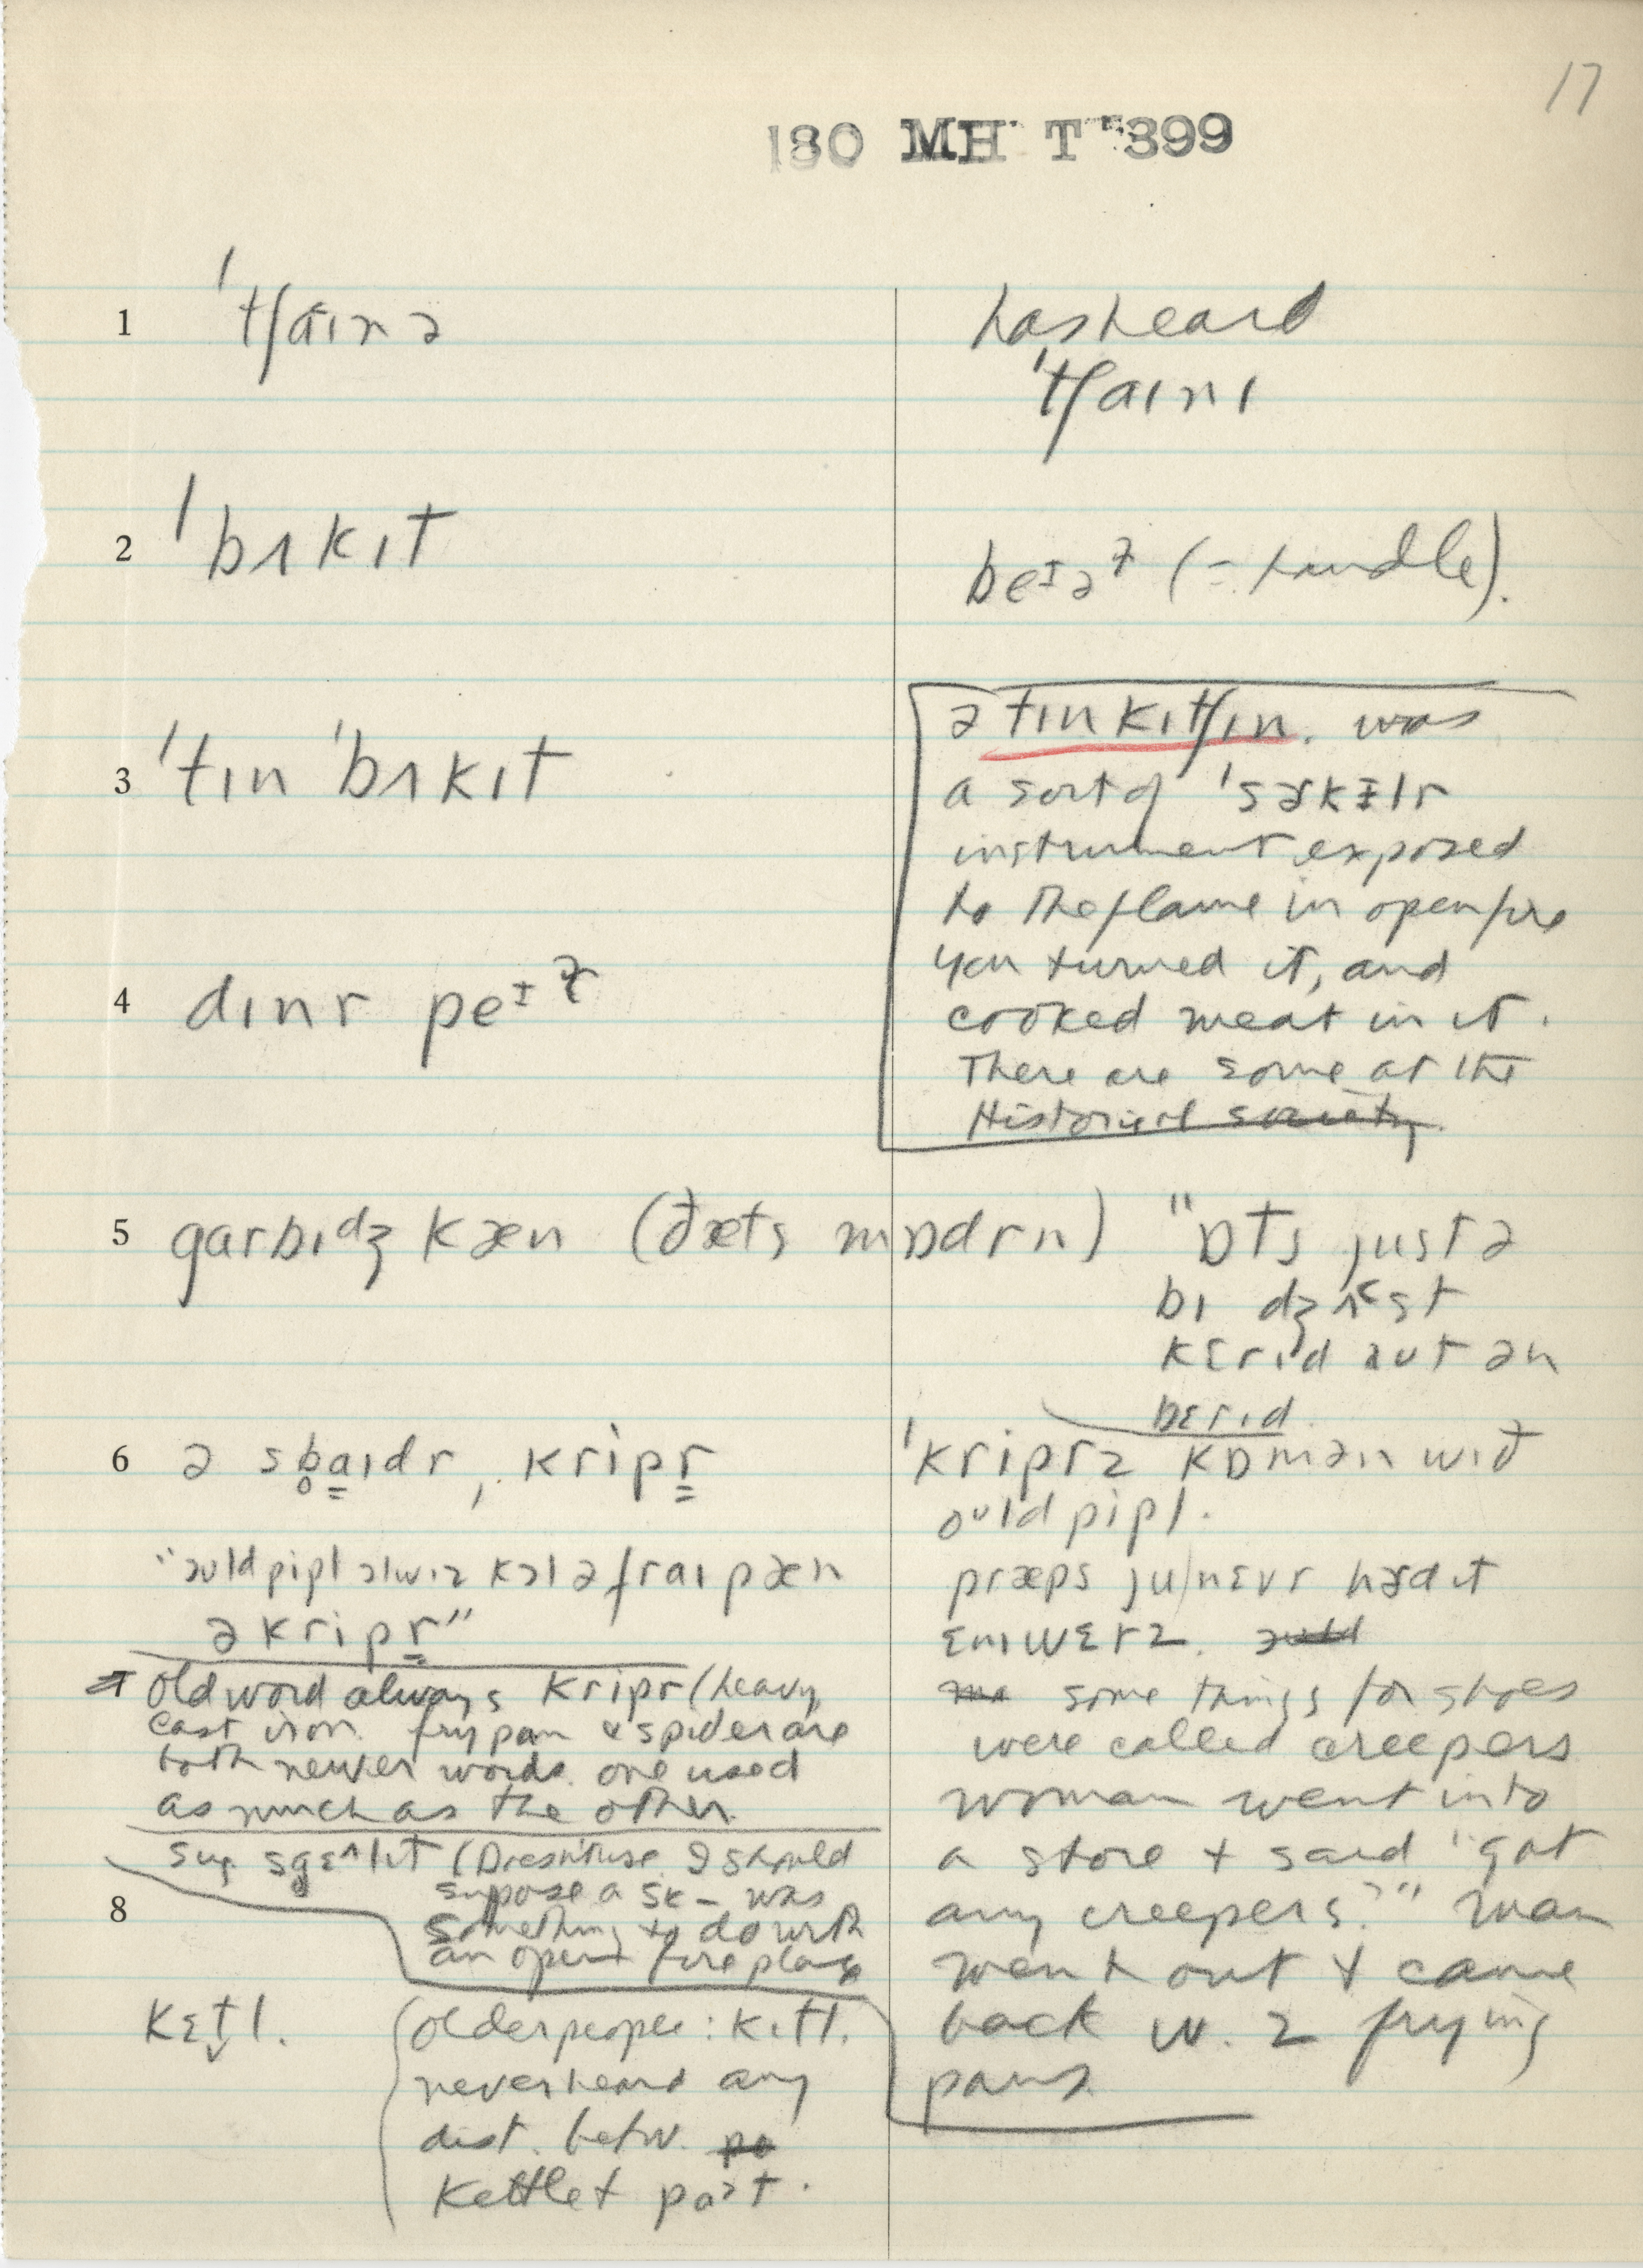 17
180 MH T 399
1 ˈtʃaɪnə
has heard
ˈtʃaɪnɪ
2 ˈbʌkɪt
be (= handle).
3 ˈtɪn ˈbʌkɪt
ə tɪn kɪtʃɪn. was
a sort of
instrument exposed
to the flame in open fire
you turned it, and
cooked meat in it.
There are some at the
Historical society.
4 dɪnr
5 garbɪdʒ kæn (ðæts mɒdrn)
"ɒts just ə
bɪ dʒʌst
kɛrɪd aut ən
bɛrɪd
6 ə sb̥aɪdr, kripr
ˈkriprz kɒmən wɪð
oʊld pipl.
"əʊld pipl ɔlwɪz kɔl ə fraɪ pæn
ə kripr"
præps ju nɛvr hɜd ɪt
ɛnɪwɛrz.
old word always kripr (heavy
cast iron. fry pan & spider are
both newer words. one used
as much as the other.
some things for shoes
were called creepers
woman went into
a store + said "got
any creepers?" man
went out + came
back w. 2 frying
pans.
sug. (Doesn't use. I should
suppose a sk- was
something to do with
an open fire place
8
kɛt̬l.
(older people: kɪtl.
never heard any
dist. betw.
kettle +